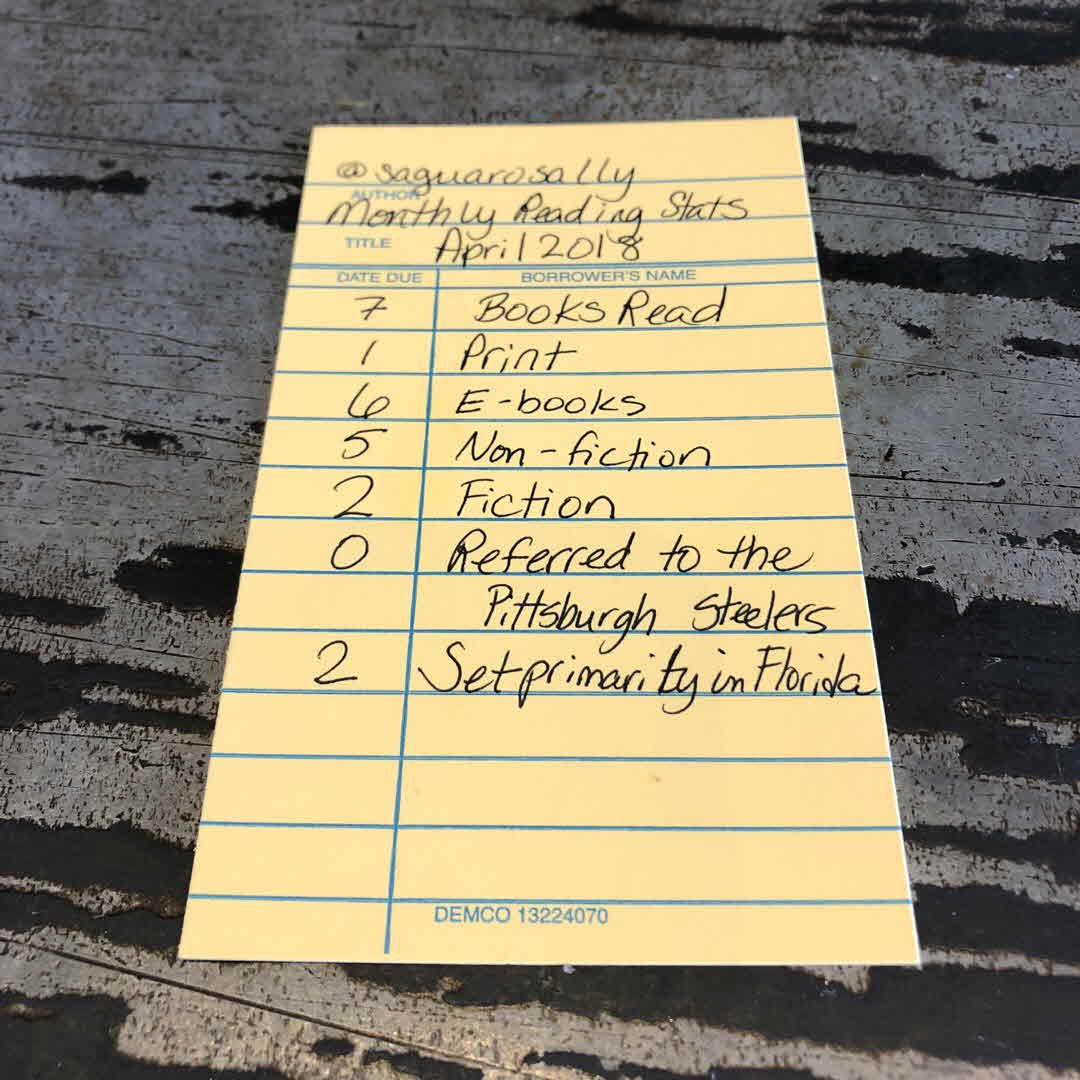 @saguarosally
AUTHOR
Monthly Reading Stats
TITLE April 2018
DATE DUE BORROWER'S NAME
7 Books Read
1 Print
6 E-books
5 Non-fiction
2 Fiction
0 Referred to the
Pittsburgh Steelers
2 Set primarity in Florida
DEMCO 13224070